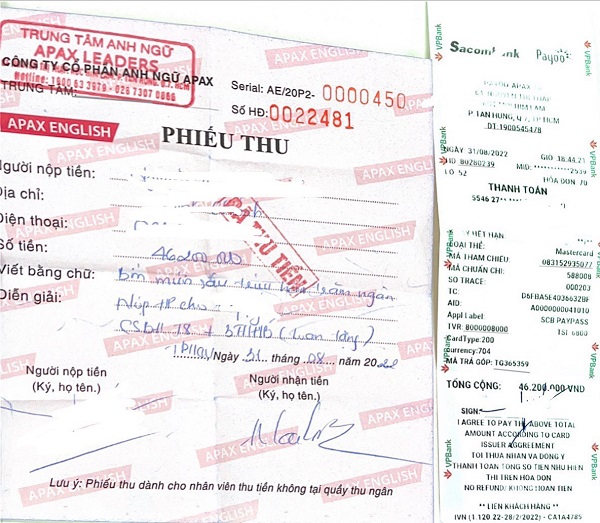 TRUNG TÂM ANH NGỮ
APAX LEADERS
CÔNG TY CỔ PHẦN ANH NGỮ APAX
Hotline: 1800 63 3979 - 028 7307 0866
TRUNG TÂM:
Serial: AE/20P2- 0000450
Số HĐ: 0022481
APAX ENGLISH
PHIẾU THU
Người nộp tiền:
Địa chỉ:
Điện thoại:
ĐÃ THU TIỀN
Số tiền: 46.200.000
Viết bằng chữ: Bốn mươi sáu triệu hai trăm ngàn
Diễn giải: Nộp HP cho
Ngày 31 tháng 08 năm 2022
Người nộp tiền
(Ký, họ tên.)
Người nhận tiền
(Ký, họ tên.)
Lưu ý: Phiếu thu dành cho nhân viên thu tiền không tại quầy thu ngân
Sacombank Payoo
PAYOO APAX
P TAN HUNG, Q 7, TP HCM
DT.1900545478
NGÀY 31/08/2022 GIO 18:44:21
80280239 MID: ********2539
LO 52 HÓA ĐƠN 70
THANH TOÁN
5546 27
HẾT HẠN
LOẠI THẺ: Mastercard
MÃ THAM CHIẾU: 083152935077
MÃ CHUẨN CHI: 588008
SO TRACE: 000203
TC: D6FBA5E4036632BF
AID: A0000000041010
Appl Label: SCB PAYPASS
TVR: 8000008000 TSI 6800
CardType:200
Currency:704
MÃ TRẢ GÓP: TG365359
TỔNG CỘNG: 46.200.000 VND
SIGN:
I AGREE TO PAY THE ABOVE TOTAL
AMOUNT ACCORDING TO CARD
ISSUER AGREEMENT
TOI THUA NHAN VA DONG Y
THANH TOAN TONG SO TIEN NHU HIEN
THI TREN HOA DON
NO REFUND/ KHONG HOAN TIEN
** LIEN KHACH HANG **
IVN (1.120.22-28/2/2022) - CA1A4785
VPBank